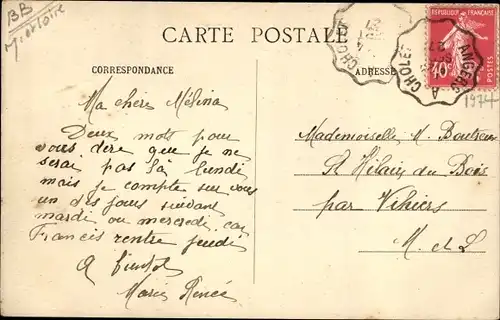 BB
CARTE POSTALE
CORRESPONDANCE
ADRESSE
RÉPUBLIQUE FRANÇAISE
40c
POSTES
ANGERS A CHOLET
CHOLET
Ma chère Mélina
Deux mots pour
vous dire que je ne
serai pas là lundi
mais je compte sur vous
un des jours suivant
mardi ou mercredi car
Francis rentre jeudi
A bientot
Marie Renée
Mademoiselle M.
St Hilaire du Bois
par Vihiers
M. et L